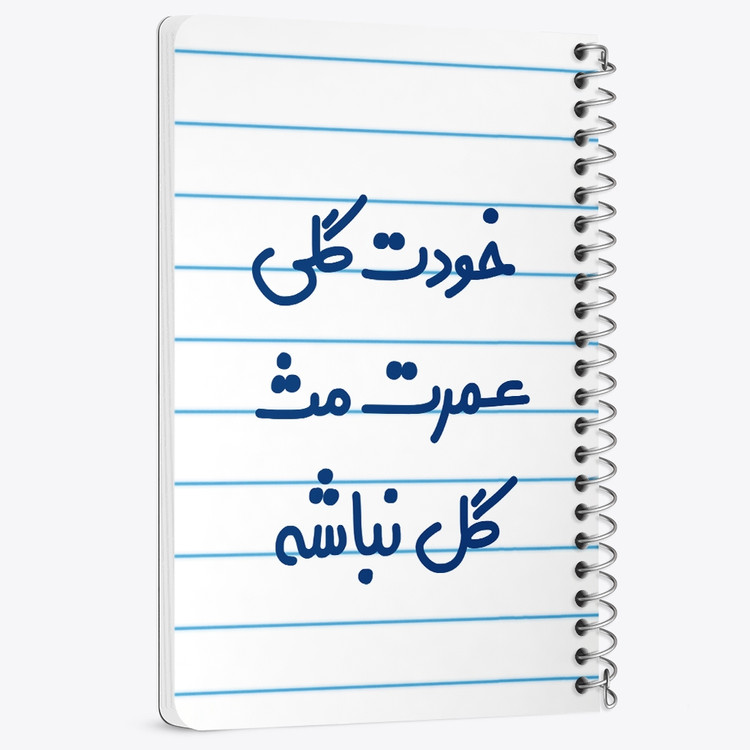 خودت گلی
عمرت مث
گل نباشه